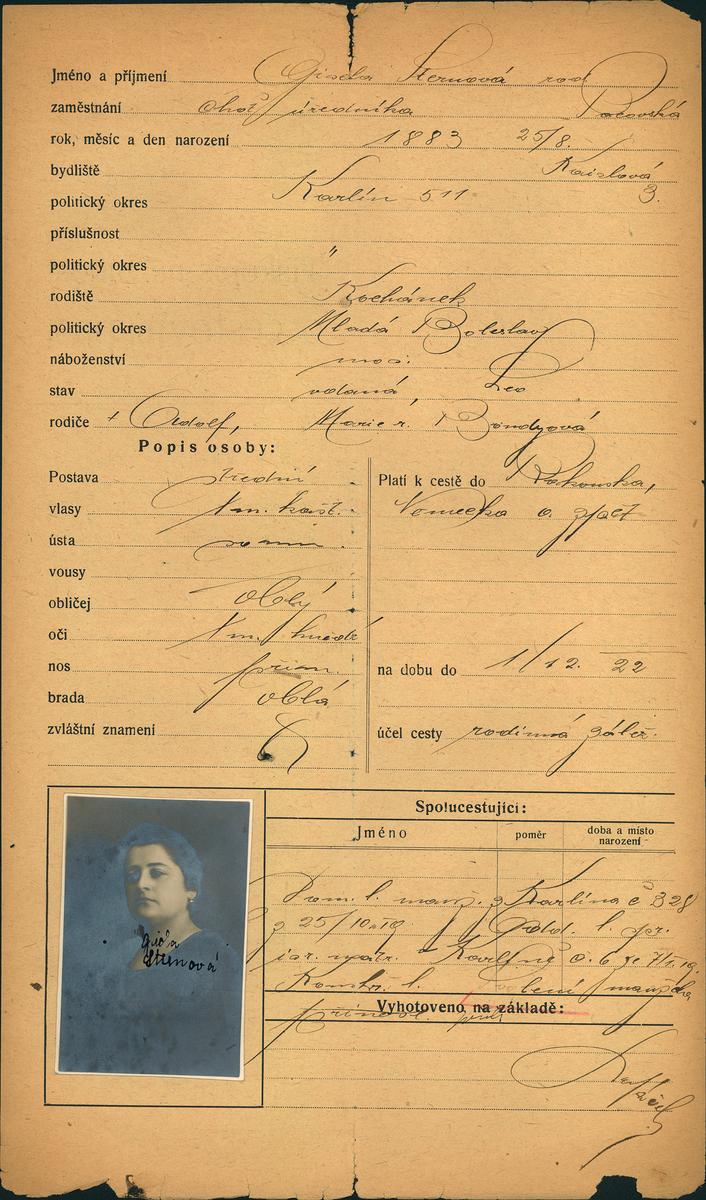 Jméno a příjmení Gisela Sternová roz
zaměstnání choť úředníka Pacovská
rok, měsíc a den narození 1883 25/8.
bydliště Kaizlova
politický okres Karlín 511 3.
příslušnost
politický okres "
rodiště Kochánek
politický okres Mladá Boleslav
náboženství mos.
stav vdaná, Leo
rodiče + Adolf, Marie r. Bondyová
Popis osoby:
Postava střední
vlasy tm. kašt.
ústa norm.
vousy
obličej oblý
oči tm. hnědé
nos přím.
brada oblá
zvláštní znamení
Platí k cestě do Rakouska,
Německa a zpět
na dobu do 1/12. 22
účel cesty rodinná zálež.
Spolucestující:
Jméno poměr doba a místo narození
Dom. l. mag. z Karlína č 328
z 25/10 19 Odd. l. pr.
isr. matr. Karlín č. 6 ze
Konstr. l.
Vyhotoveno na základě:
Gisela
Sternová